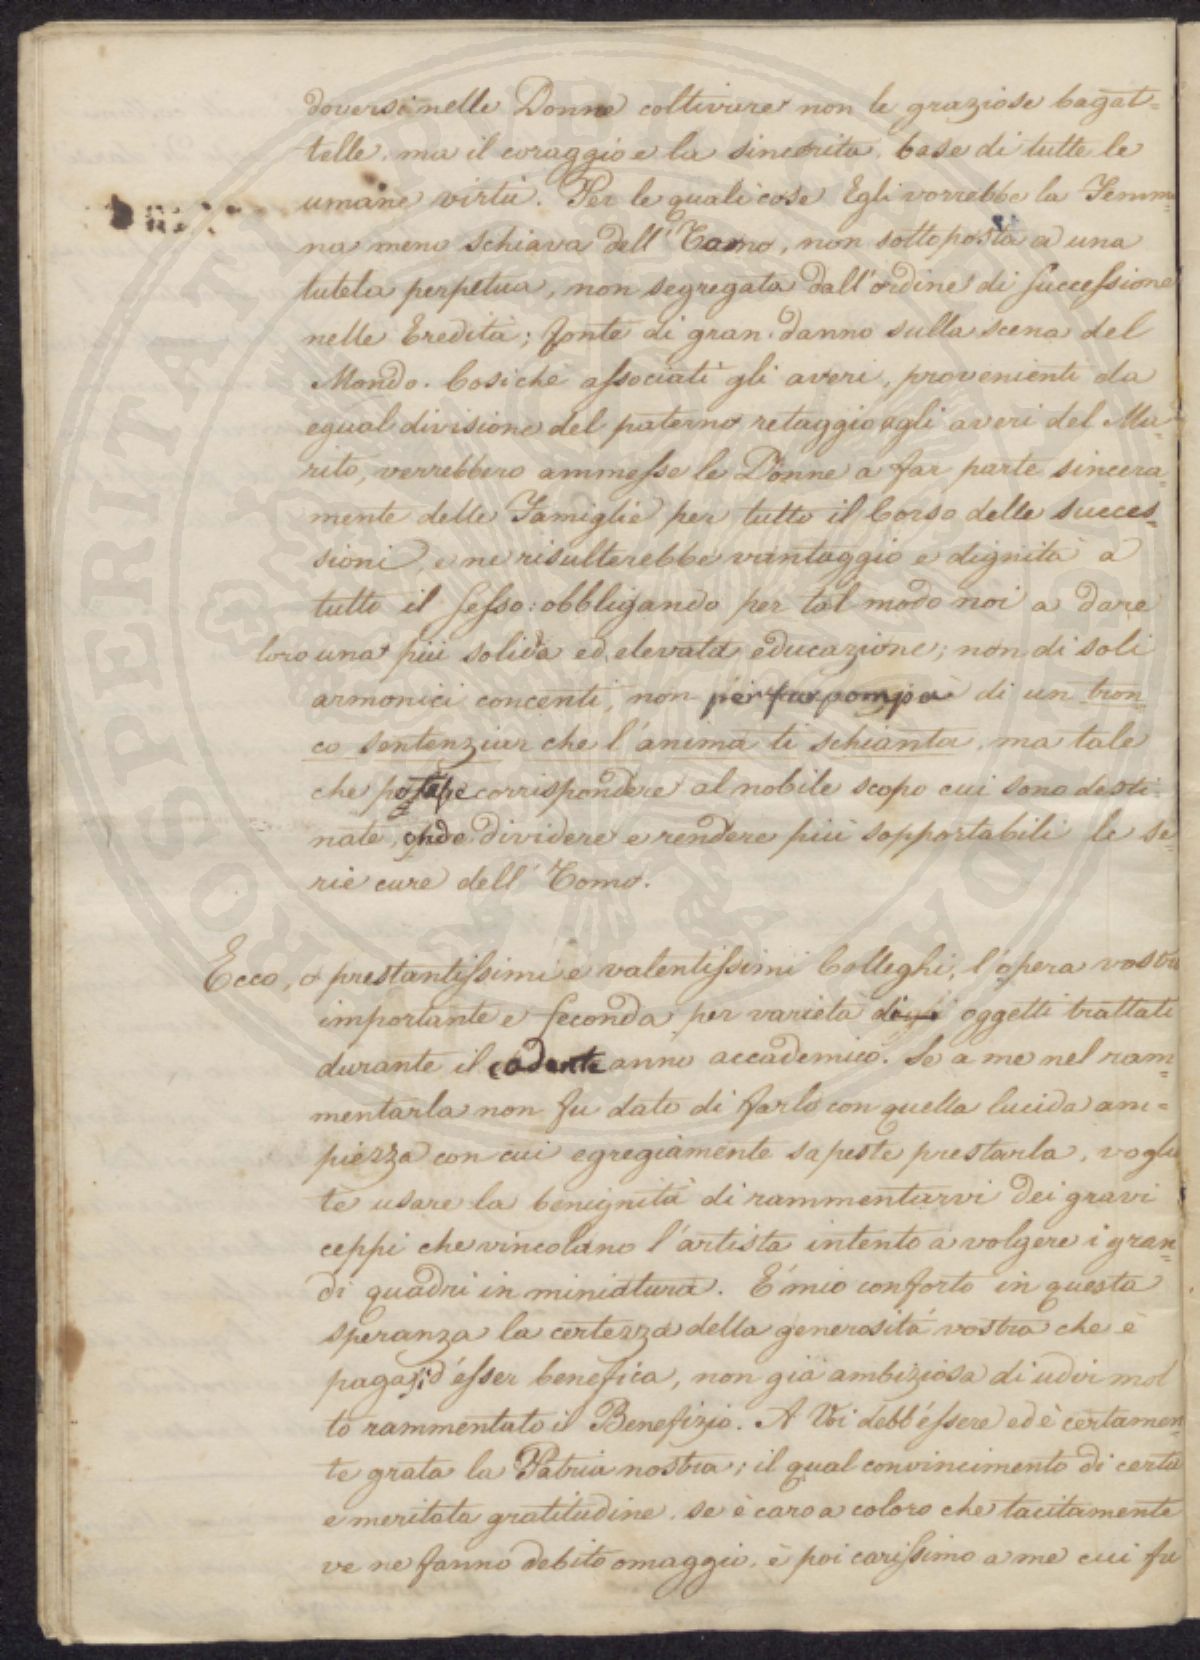 doversi nelle Donne coltivare non le graziose bagat=
telle, ma il coraggio e la sincerita, base di tutte le
umane virtù. Per le quali cose Egli vorrebbe la Femmi
na meno schiava dell'Uomo, non sottoposta a una
tutela perpetua, non segregata dall'ordine di successione
nelle Eredità; fonte di gran danno sulla scena del
Mondo. Cosichè associati gli averi, provenienti da
egual divisione del paterno retaggio agli averi del Ma=
rito, verrebbero ammesse le Donne a far parte sincera=
mente delle Famiglie per tutto il Corso delle succes=
sioni, e ne risulterebbe vantaggio e dignità a
tutto il sesso: obbligando per tal modo noi a dare
loro una più solida ed elevata educazione; non di soli
armonici concenti, non per far pompa di un tron
co sentenziar che l'anima ti schianta, ma tale
che potesse corrispondere al nobile scopo cui sono desti
nate, onde dividere e rendere più sopportabili le se=
rie cure dell'Uomo.
Ecco, o prestantissimi e valentissimi Colleghi, l'opera vostra
importante e feconda per varietà di oggetti trattati
durante il cadente anno accademico. Se a me nel ram=
mentarla non fu dato di farlo con quella lucida am=
piezza con cui egregiamente sapeste prestarla, voglia
te usare la benignità di rammentarvi dei gravi
ceppi che vincolano l'artista intento a volgere i gran=
di quadri in miniatura. E' mio conforto in questa
speranza la certezza della generosità vostra che è
paga d'esser benefica, non già ambiziosa di udir mol
to rammentato il Benefizio. A Voi debb'essere ed è certamen=
te grata la Patria nostra; il qual convincimento di certa
e meritata gratitudine, se è caro a coloro che tacitamente
ve ne fanno debito omaggio, è poi carissimo a me cui fu
PROSPERITATI PUBLICAE